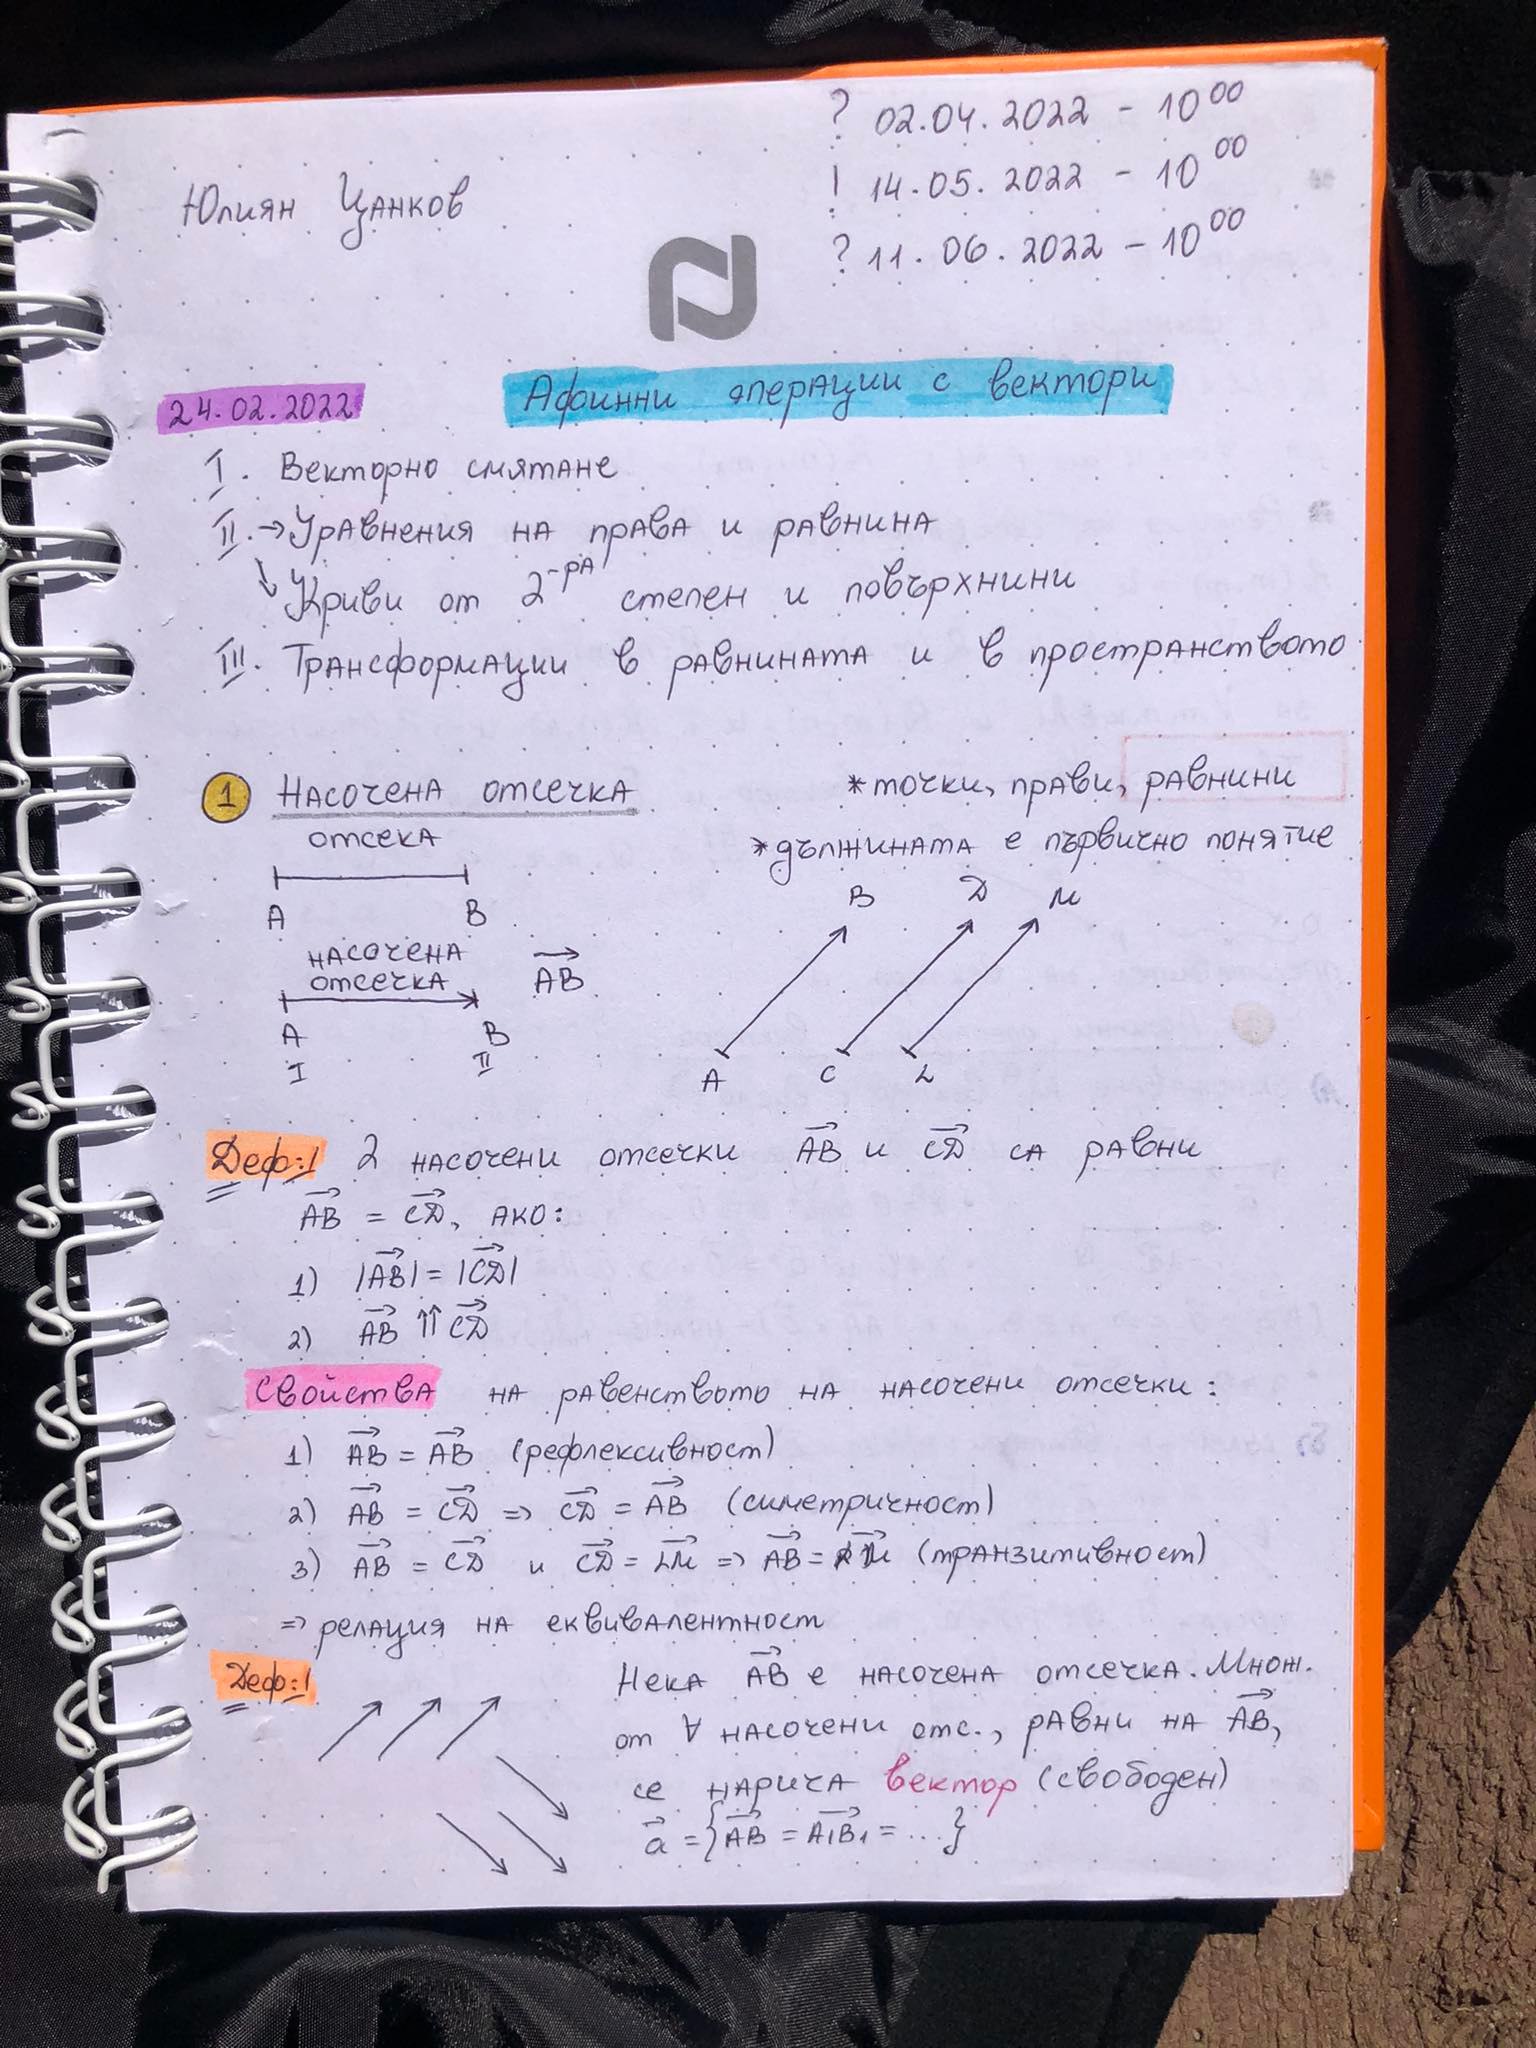 ? 02.04.2022 - 10⁰⁰
! 14.05.2022 - 10⁰⁰
? 11.06.2022 - 10⁰⁰
Юлиян Цанков
24.02.2022
Афинни операции с вектори
I. Векторно смятане
II. → Уравнения на права и равнина
↳ Криви от 2-ра степен и повърхнини
III. Трансформации в равнината и в пространството
1 Насочена отсечка
* точки, прави, равнини
отсека
* дължината е първично понятие
A B
насочена
отсечка
AB→
A B
I II
B D M
A C L
Деф:1 2 насочени отсечки AB→ и CD→ са равни
AB→ = CD→, ако:
1) |AB→| = |CD→|
2) AB→ ↑↑ CD→
Свойства на равенството на насочени отсечки:
1) AB→ = AB→ (рефлексивност)
2) AB→ = CD→ => CD→ = AB→ (симетричност)
3) AB→ = CD→ и CD→ = LM→ => AB→ = LM→ (транзитивност)
=> релация на еквивалентност
Деф:1
Нека AB→ е насочена отсечка. Множ.
от ∀ насочени отс., равни на AB→,
се нарича вектор (свободен)
a→ = {AB→ = A₁B₁→ = ...}